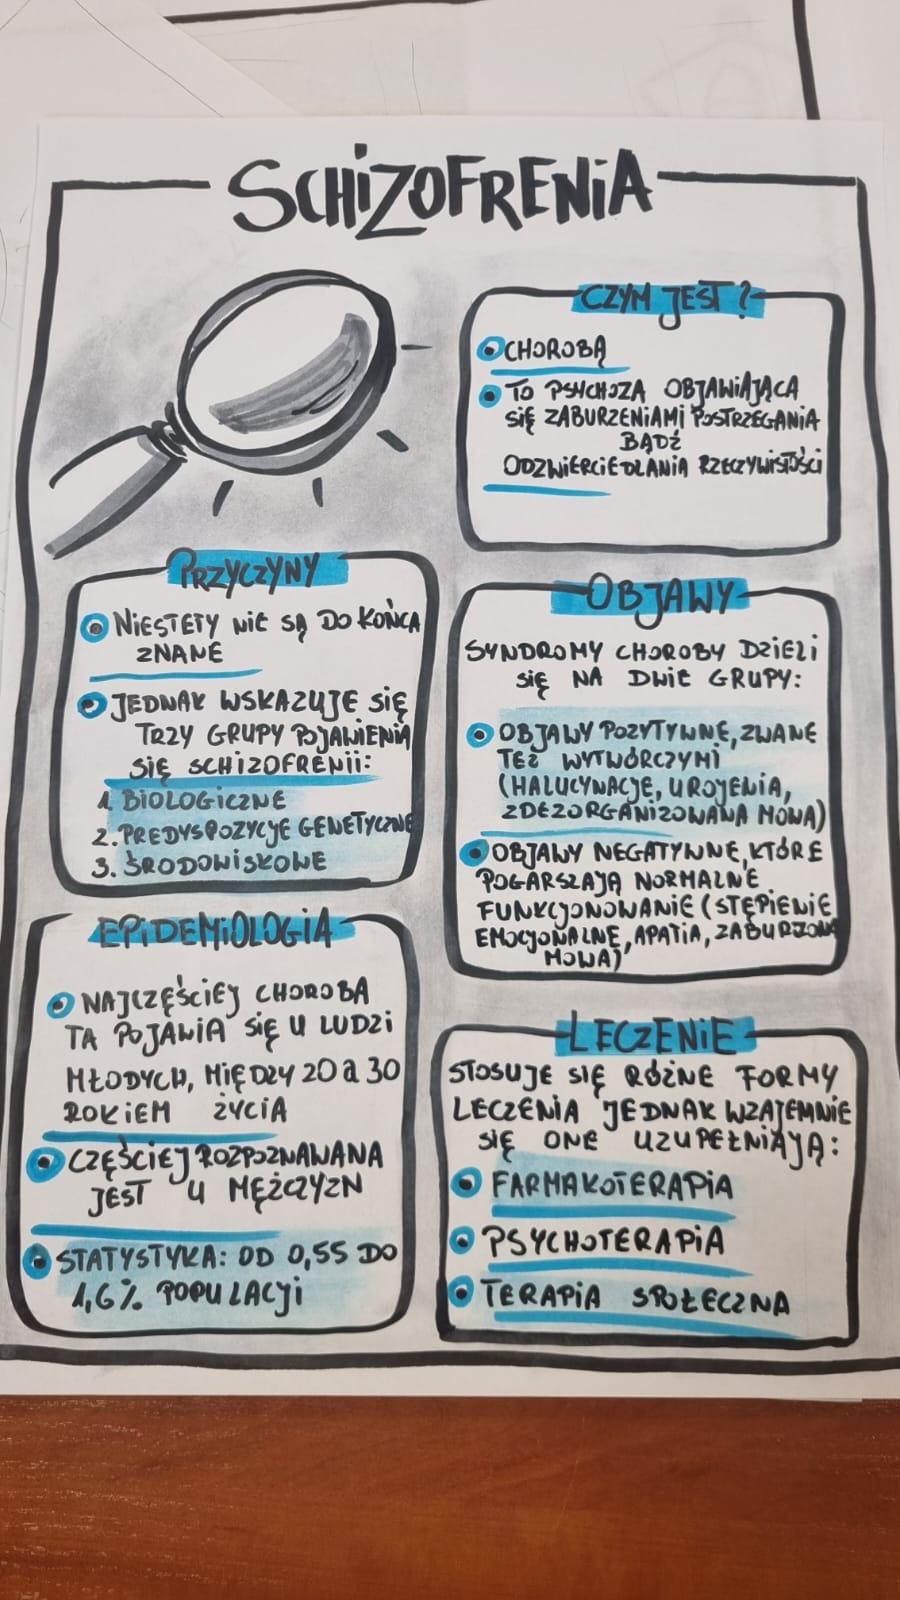 SCHIZOFRENIA
CZYM JEST?
CHOROBĄ
TO PSYCHOZA OBJAWIAJĄCA
SIĘ ZABURZENIAMI POSTRZEGANIA
BĄDŹ
ODZWIERCIEDLANIA RZECZYWISTOŚCI
PRZYCZYNY
NIESTETY NIE SĄ DO KOŃCA
ZNANE
JEDNAK WSKAZUJE SIĘ
TRZY GRUPY POJAWIENIA
SIĘ SCHIZOFRENII:
1. BIOLOGICZNE
2. PREDYSPOZYCJE GENETYCZNE
3. ŚRODOWISKOWE
OBJAWY
SYNDROMY CHOROBY DZIELI
SIĘ NA DWIE GRUPY:
OBJAWY POZYTYWNE, ZWANE
TEŻ WYTWÓRCZYMI
(HALUCYNACJE, UROJENIA,
ZDEZORGANIZOWANA MOWA)
OBJAWY NEGATYWNE, KTÓRE
POGARSZAJĄ NORMALNE
FUNKCJONOWANIE (STĘPIENIE
EMOCJONALNE, APATIA, ZABURZONA
MOWA)
EPIDEMIOLOGIA
NAJCZĘŚCIEJ CHOROBA
TA POJAWIA SIĘ U LUDZI
MŁODYCH, MIĘDZY 20 A 30
ROKIEM ŻYCIA
CZĘŚCIEJ ROZPOZNAWANA
JEST U MĘŻCZYZN
STATYSTYKA: OD 0,55 DO
1,6% POPULACJI
LECZENIE
STOSUJE SIĘ RÓŻNE FORMY
LECZENIA JEDNAK WZAJEMNIE
SIĘ ONE UZUPEŁNIAJĄ:
FARMAKOTERAPIA
PSYCHOTERAPIA
TERAPIA SPOŁECZNA